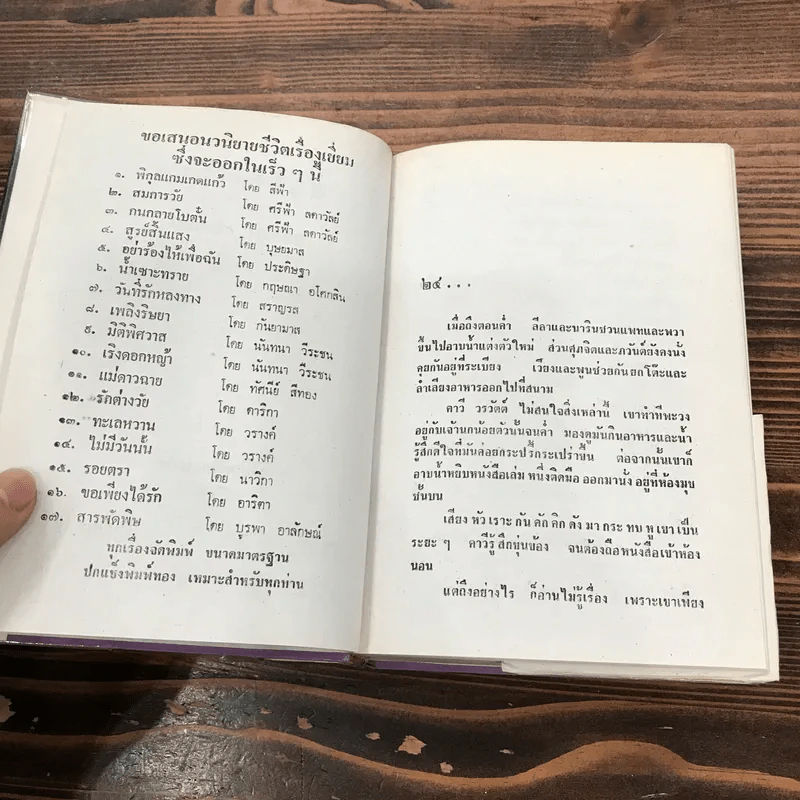 ขอเสนอนวนิยายชีวิตเรื่องเยี่ยม
ซึ่งจะออกในเร็ว ๆ นี้
๑. พิกุลแกมเกดแก้ว โดย สีฟ้า
๒. สมการวัย โดย ศรีฟ้า ลดาวัลย์
๓. กนกลายโบตั๋น โดย ศรีฟ้า ลดาวัลย์
๔. สูรย์สิ้นแสง โดย บุษยมาส
๕. อย่าร้องไห้เพื่อฉัน โดย ประดิษฐา
๖. น้ำเซาะทราย โดย กฤษณา อโศกสิน
๗. วันที่รักหลงทาง โดย สราญรส
๘. เพลิงริษยา โดย กันยามาส
๙. มิติพิศวาส โดย นันทนา วีระชน
๑๐. เริงดอกหญ้า โดย นันทนา วีระชน
๑๑. แม่ดาวฉาย โดย ทัศนีย์ สีทอง
๑๒. รักต่างวัย โดย ดาริกา
๑๓. ทะเลหวาน โดย วรางค์
๑๔. ไม่มีวันนั้น โดย วรางค์
๑๕. รอยตรา โดย นาวิกา
๑๖. ขอเพียงได้รัก โดย อาริตา
๑๗. สารพัดพิษ โดย บูรพา อาลักษณ์
ทุกเรื่องจัดพิมพ์ ขนาดมาตรฐาน
ปกแข็งพิมพ์ทอง เหมาะสำหรับทุกท่าน
๒๔...
เมื่อถึงตอนค่ำ ลีลาและนารินชวนแพทและพวา
ขึ้นไปอาบน้ำแต่งตัวใหม่ ส่วนศุภจิตและภวันต์ยังคงนั่ง
คุยกันอยู่ที่ระเบียง เวียงและพูนช่วยกันยกโต๊ะและ
ลำเลียงอาหารออกไปที่สนาม
คาวี วรวัตต์ ไม่สนใจสิ่งเหล่านี้ เขาทำทีพะวง
อยู่กับเจ้านกน้อยตัวนั้นจนค่ำ มองดูมันกินอาหารและน้ำ
รู้สึกดีใจที่มันค่อยกระปรี้กระเปร่าขึ้น ต่อจากนั้นเขาก็
อาบน้ำหยิบหนังสือเล่ม หนึ่งติดมือ ออกมานั่ง อยู่ที่ห้องมุข
ชั้นบน
เสียง หัว เราะ กัน คิก คัก ดัง มา กระ ทบ หู เขา เป็น
ระยะ ๆ คาวีรู้ สึกขุ่นข้อง จนต้องถือหนังสือเข้าห้อง
นอน
แต่ถึงอย่างไร ก็อ่านไม่รู้เรื่อง เพราะเขาเพียง